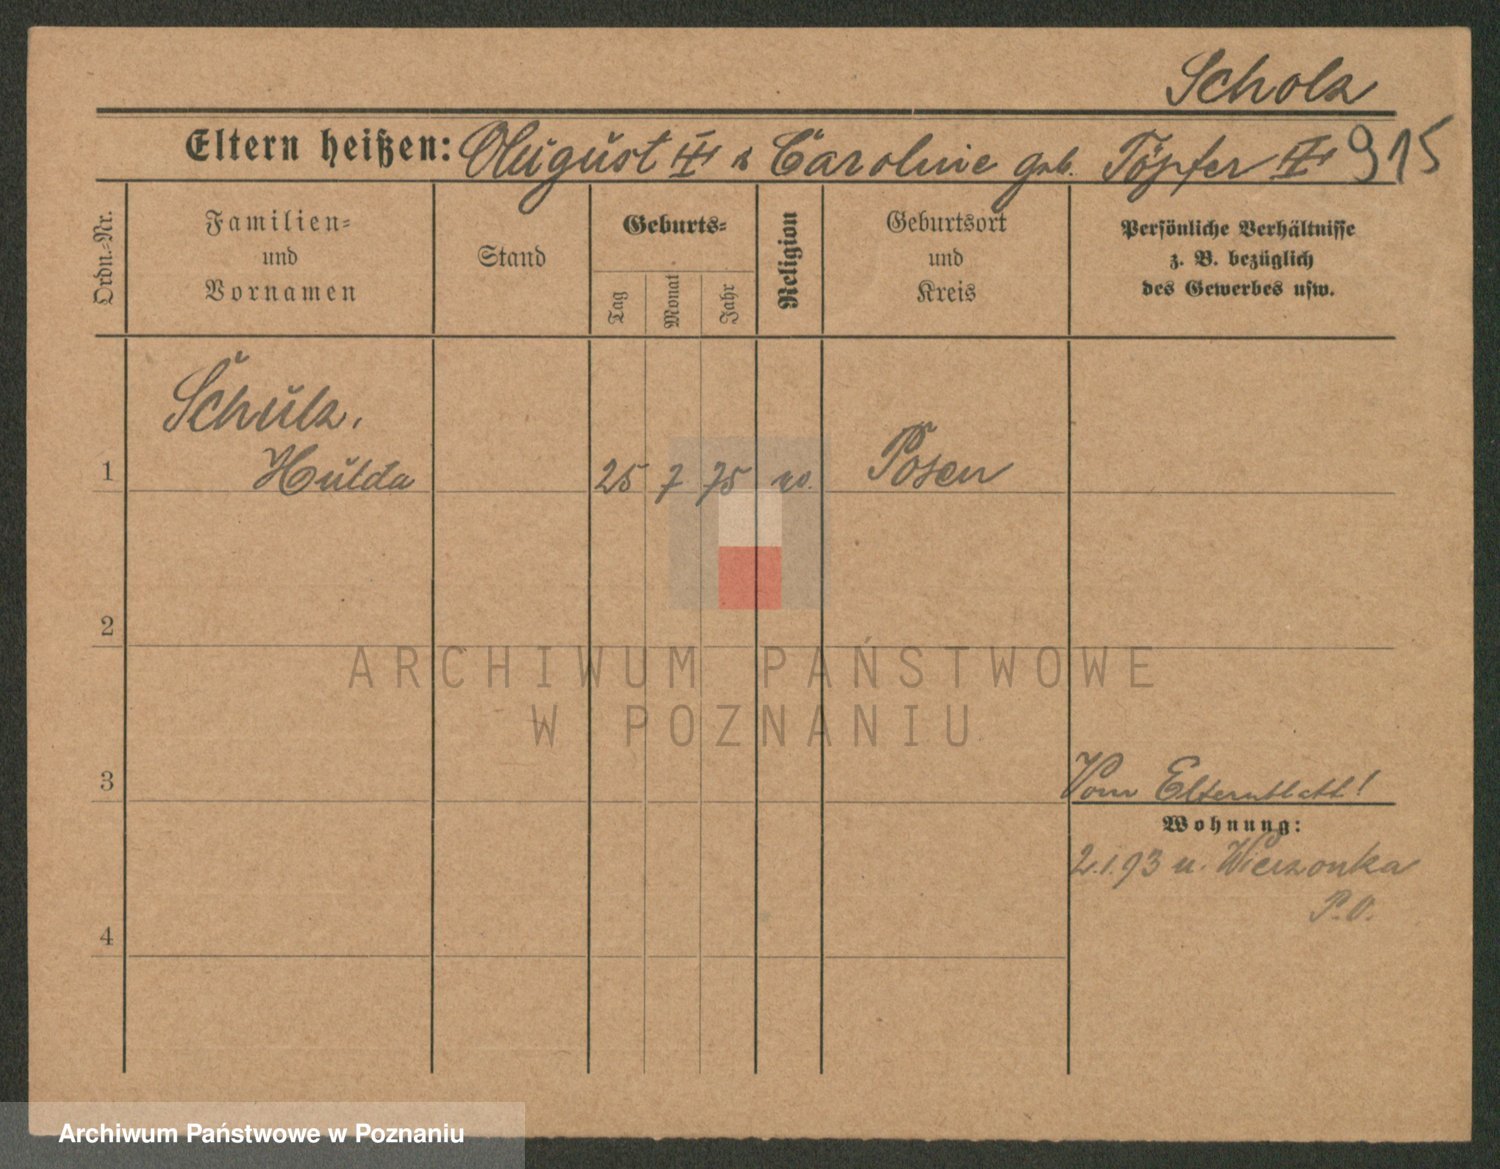 Scholz
Eltern heißen: August & Caroline geb. Töpfer 915
Ordn.-Nr.
Familien-
und
Vornamen
Stand
Geburts-
Tag
Monat
Jahr
Religion
Geburtsort
und
Kreis
Persönliche Verhältnisse
z. B. bezüglich
des Gewerbes usw.
Schulz,
1 Hulda 25 7 75 Posen
2
ARCHIWUM PAŃSTWOWE
W POZNANIU
3 Vom Elternblatt!
Wohnung:
2.1.93 n. Wierzonka
P.O.
4
Archiwum Państwowe w Poznaniu